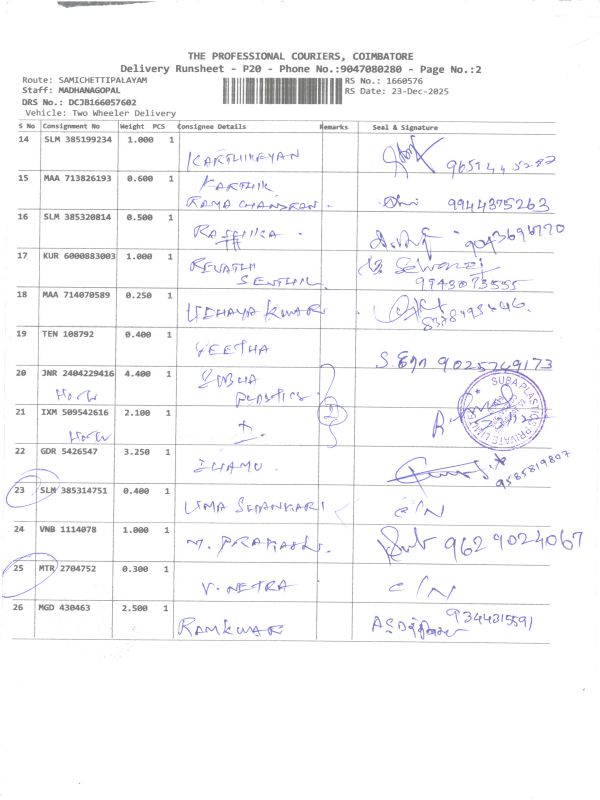 THE PROFESSIONAL COURIERS, COIMBATORE
Delivery Runsheet - P20 - Phone No.:9047080280 - Page No.:2
Route: SAMICHETTIPALAYAM
RS No.: 1660576
Staff: MADHANAGOPAL
RS Date: 23-Dec-2025
DRS No.: DCJB166057602
Vehicle: Two Wheeler Delivery
S No Consignment No Weight PCS Consignee Details Remarks Seal & Signature
14 SLM 385199234 1.000 1
KARTHIKEYAN
15 MAA 713826193 0.600 1 KARTHIK
RAMA CHANDRAN. 9944375263
16 SLM 385320814 0.500 1
17 KUR 6000883003 1.000 1 REVATHI
SENTHIL 9943073555
18 MAA 714070589 0.250 1
UDHAYA KUMAR
19 TEN 108792 0.400 1
GEETHA 9025749173
20 JNR 2404229416 4.400 1 SUBHA
PLASTICS 2
SUBA PLASTICS PRIVATE LIMITED
21 IXM 509542616 2.100 1
22 GDR 5426547 3.250 1
9585819807
23 SLM 385314751 0.400 1
UMA SHANKARI C/N
24 VNB 1114078 1.000 1
M. PRAKASH. 9629024067
25 MTR 2704752 0.300 1
V. NETRA C/N
26 MGD 430463 2.500 1 9344315591
RAMKUMAR